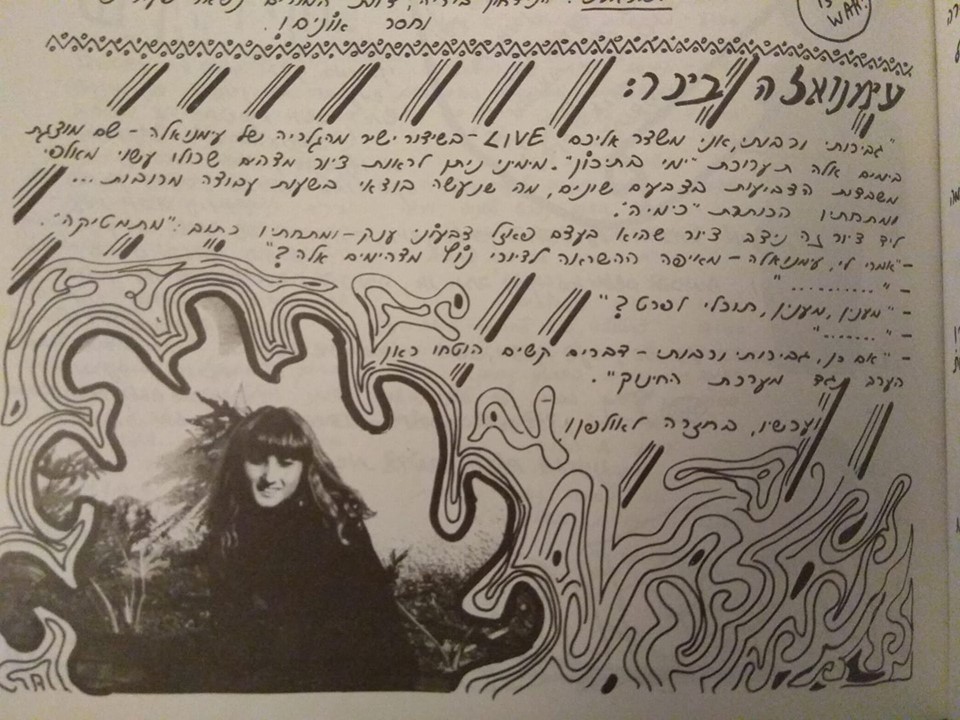 וחסר אונים!.
IS WAR!
עימנואלה בינה:
"גבירותי ורבותי, אני משדר אליכם LIVE - בשידור ישיר מהגלריה של עימנואלה - שם מוצגת
בימים אלה תערוכת "ימי בתיכון". מימיני ניתן לראות ציור מדהים שכולו עשוי מאלפי
משבצות הצביעות בצבעים שונים, מה שנעשה בוודאי בשעות עבודה מרובות ...
ומתחתיו הכותרת "כימיה".
ליד ציור זה ניצב ציור שהיא בעצם פאזל צבעוני ענק - ומתחתיו כתוב: "מתמטיקה".
- "אמרי לי, עימנואלה - מאיפה ההשראה לציורי נוף מדהימים אלה?"
- "..........."
- "מענין, מענין, תוכלי לפרט?"
- "........"
- "אם כן, גבירותי ורבותי - דברים קשים הוטחו כאן
הערב נגד מערכת החינוך".
ועכשיו, בחזרה לאולפן!